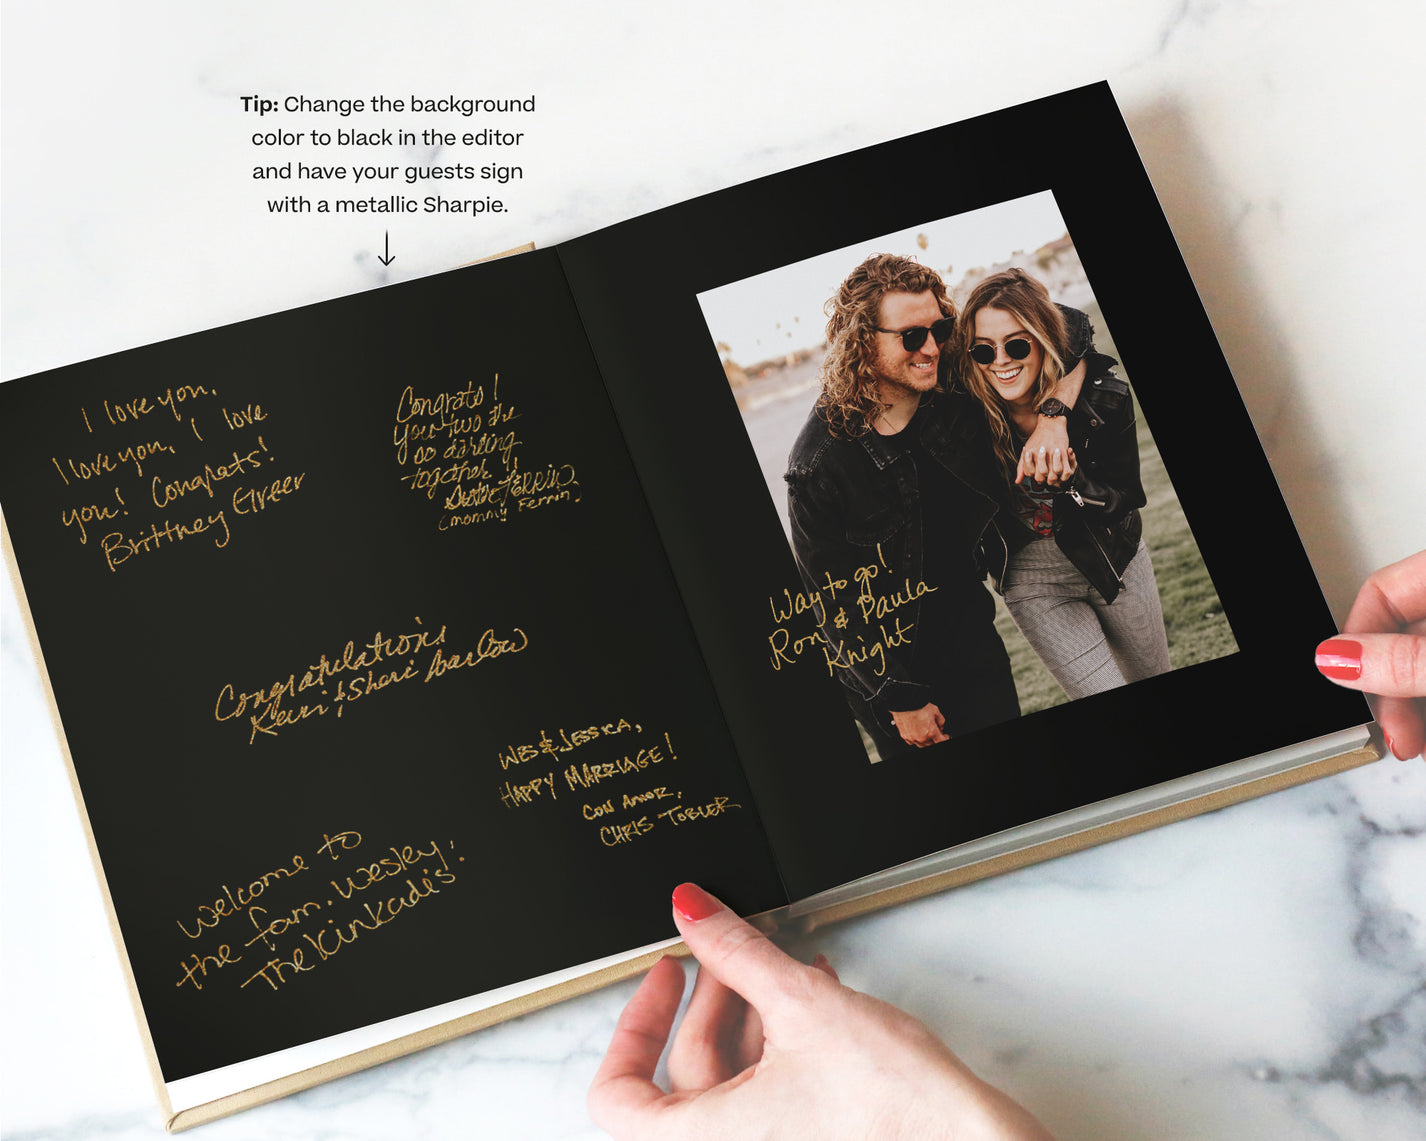 Tip: Change the background
color to black in the editor
and have your guests sign
with a metallic Sharpie.
I love you,
I love you, I love
you! Congrats!
Brittney Greer
Congrats!
you two are
so darling
together!
Ferrin
(mommy Ferrin)
Congratulations
Kevin & Sheri Barlow
WES & JESSICA,
HAPPY MARRIAGE!
CON AMOR,
CHRIS TOBLER
Welcome to
the fam. Wesley!
The Kinkade's
Way to go!
Ron & Paula
Knight